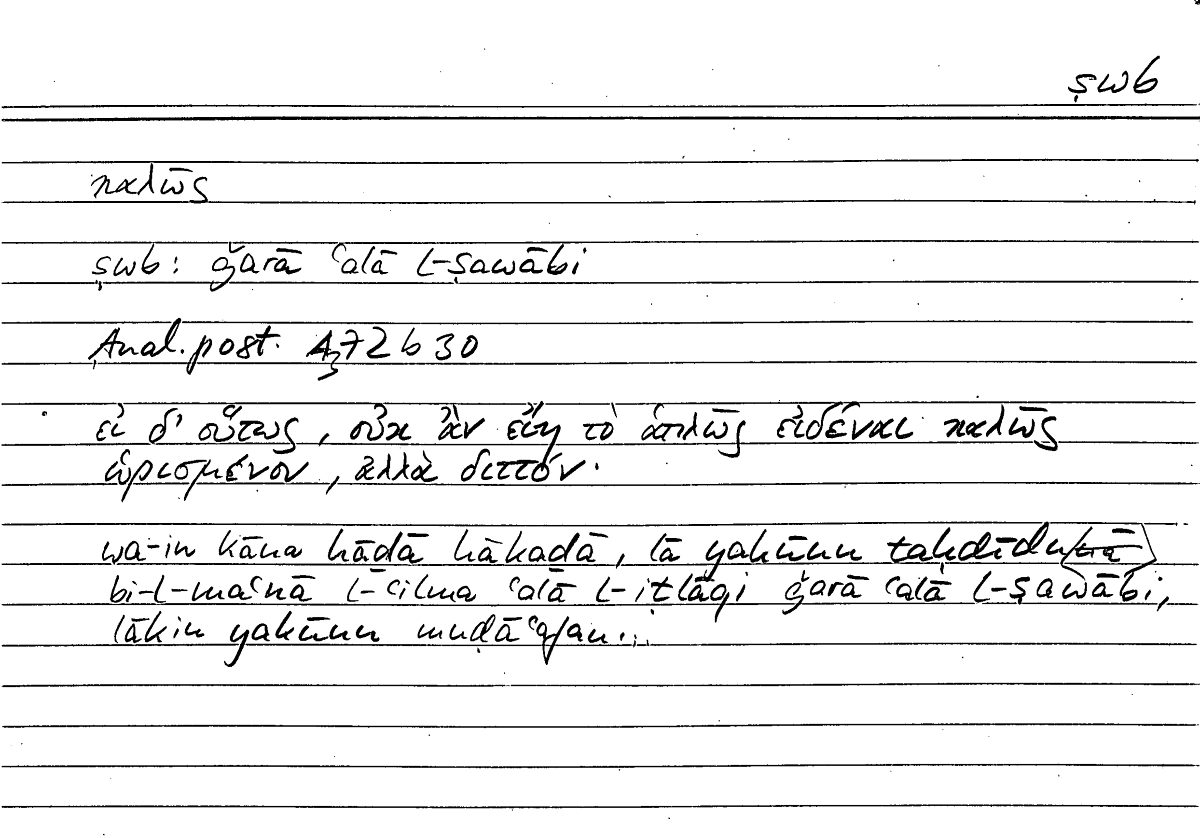 ṣwb
καλῶς
ṣwb: ǧarā ʿalā l-ṣawābi
Anal. post. A3 72 b 30
εἰ δ' οὕτως, οὐκ ἂν εἴη τὸ ἁπλῶς εἰδέναι καλῶς
ὡρισμένον, ἀλλὰ διττόν.
wa-in kāna hāḏā hākaḏā, lā yakūnu taḥdīdu
bi-l-maʿnā l-ʿilma ʿalā l-iṭlāqi ǧarā ʿalā l-ṣawābi,
lākin yakūnu muḍāʿafan...